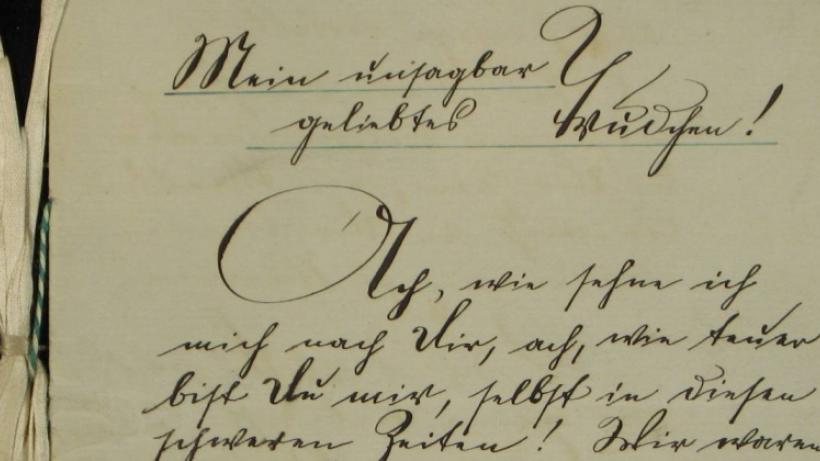 Mein unsagbar
geliebtes
Ach, wie sehne ich
mich nach Dir, ach, wie teuer
bist Du mir, selbst in diesen
schweren Zeiten! Wir waren